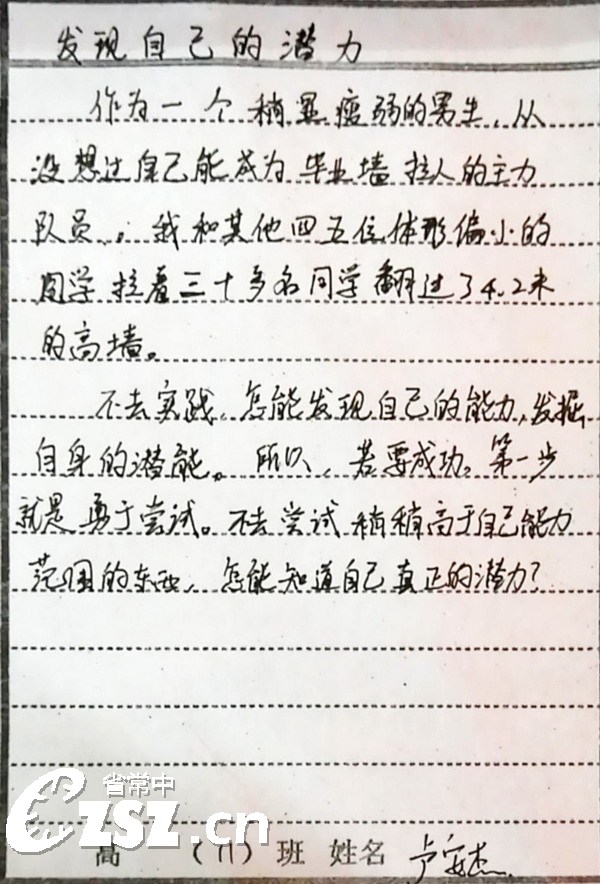 发现自己的潜力
作为一个稍显瘦弱的男生,从
没想过自己能成为毕业墙拉人的主力
队员。我和其他四五位体形偏小的
同学拉着三十多名同学翻过了4.2米
的高墙。
不去实践,怎能发现自己的能力,发掘
自身的潜能。所以,若要成功,第一步
就是勇于尝试。不去尝试稍稍高于自己能力
范围的东西,怎能知道自己真正的潜力?
省常中
CZSZ.cn
高 (11) 班 姓名 卢安杰